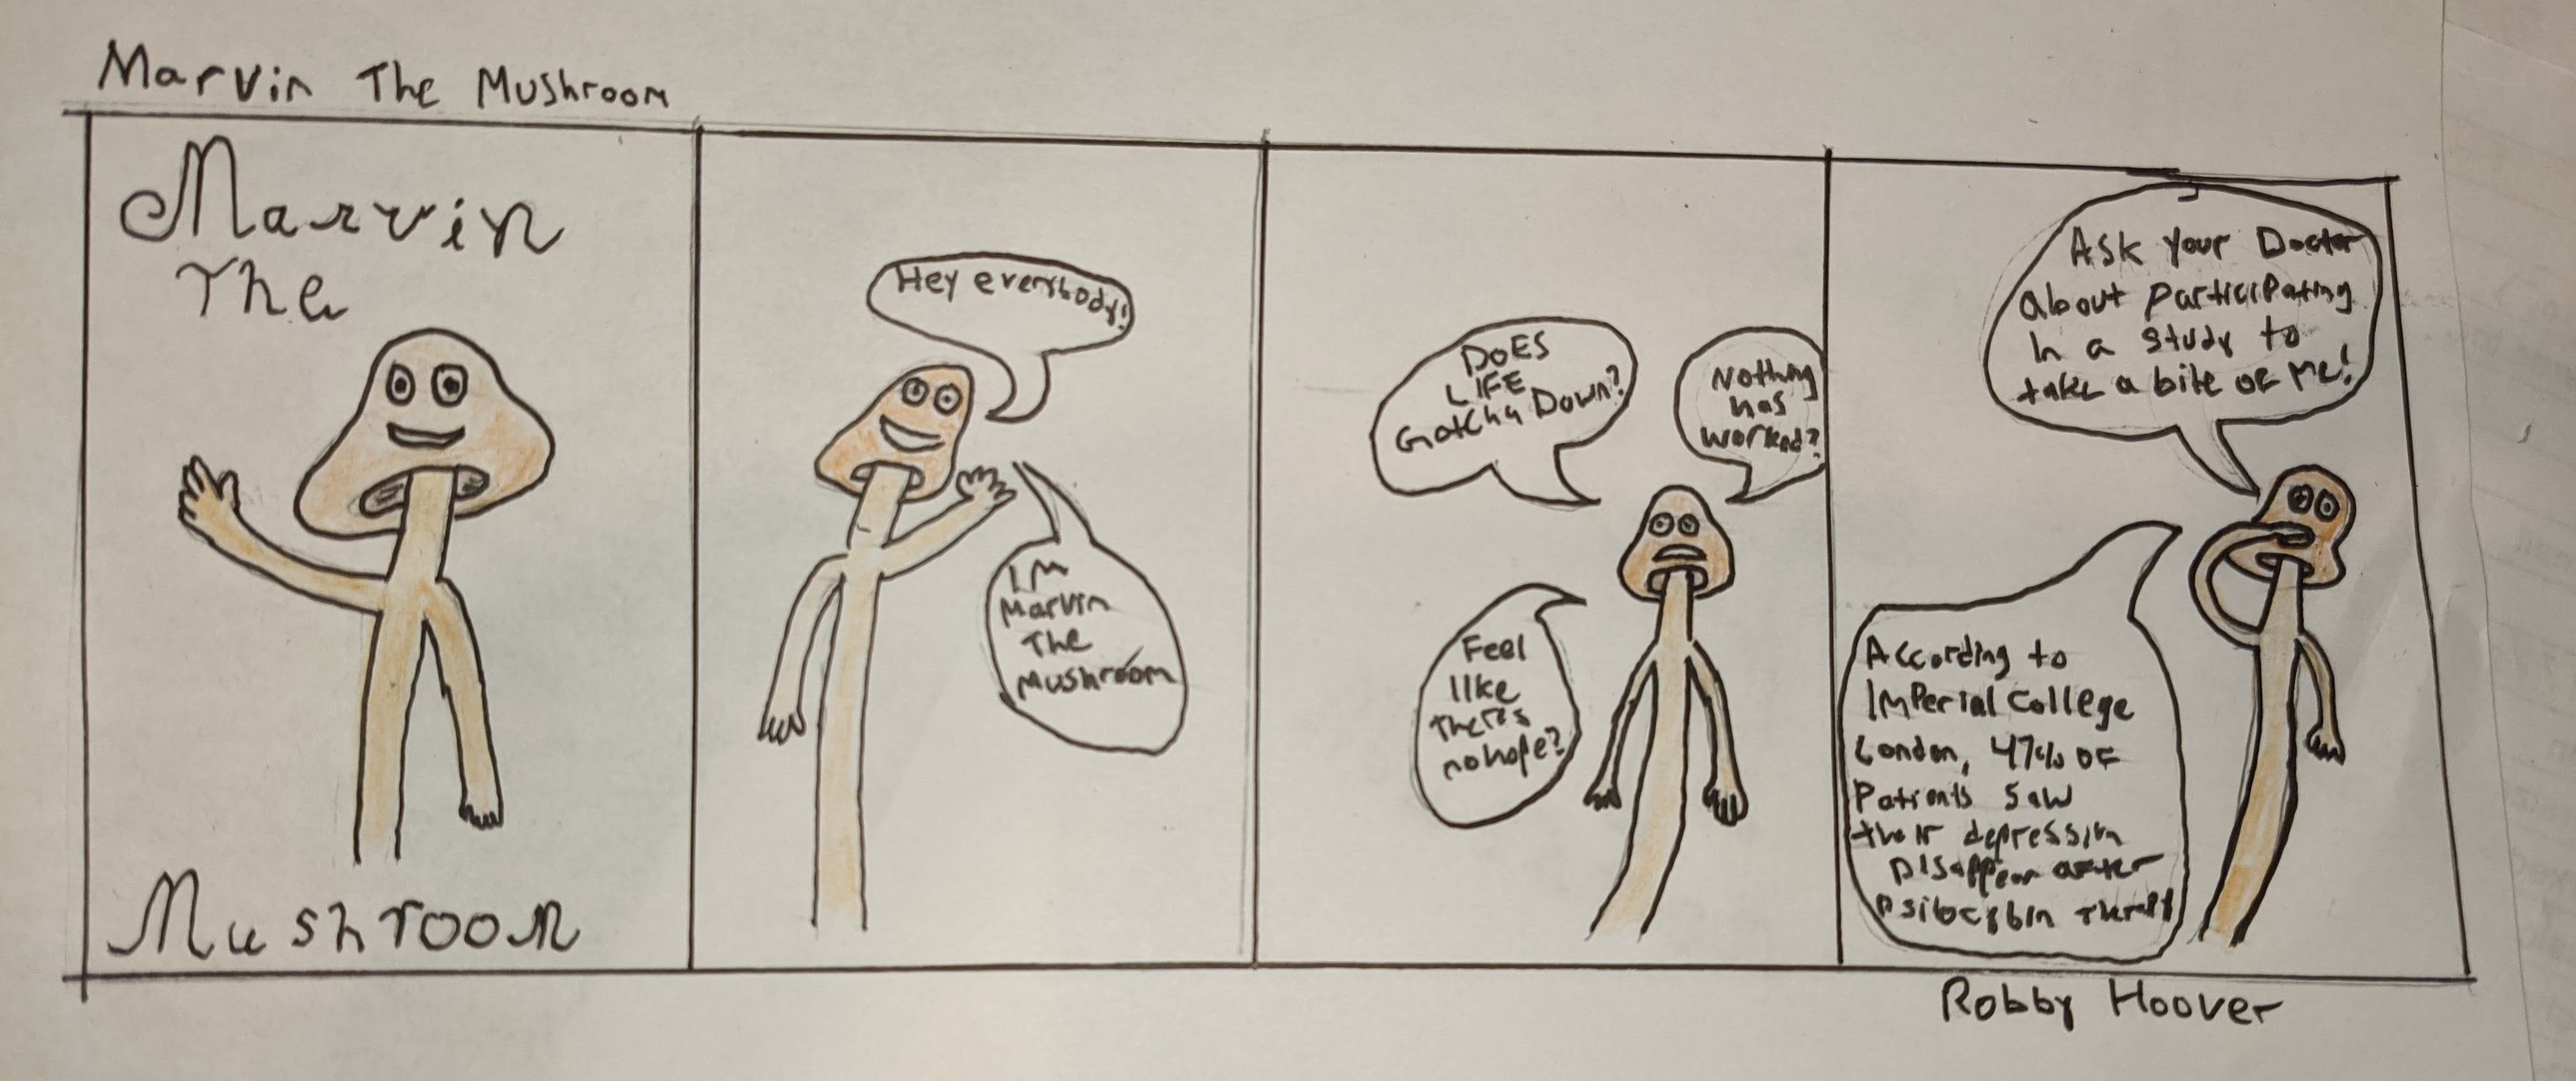 Marvin The Mushroom
Marvin
The
Mushroom
Hey everybody!
IM
Marvin
The
Mushroom
DOES
LIFE
Gotcha Down?
Nothing
has
worked?
Feel
like
theres
no hope?
Ask your Doctor
about participating
In a study to
take a bite OF Me!
According to
Imperial College
London, 47% OF
Patients saw
their depression
Disappear after
Psilocybin Therapy
Robby Hoover